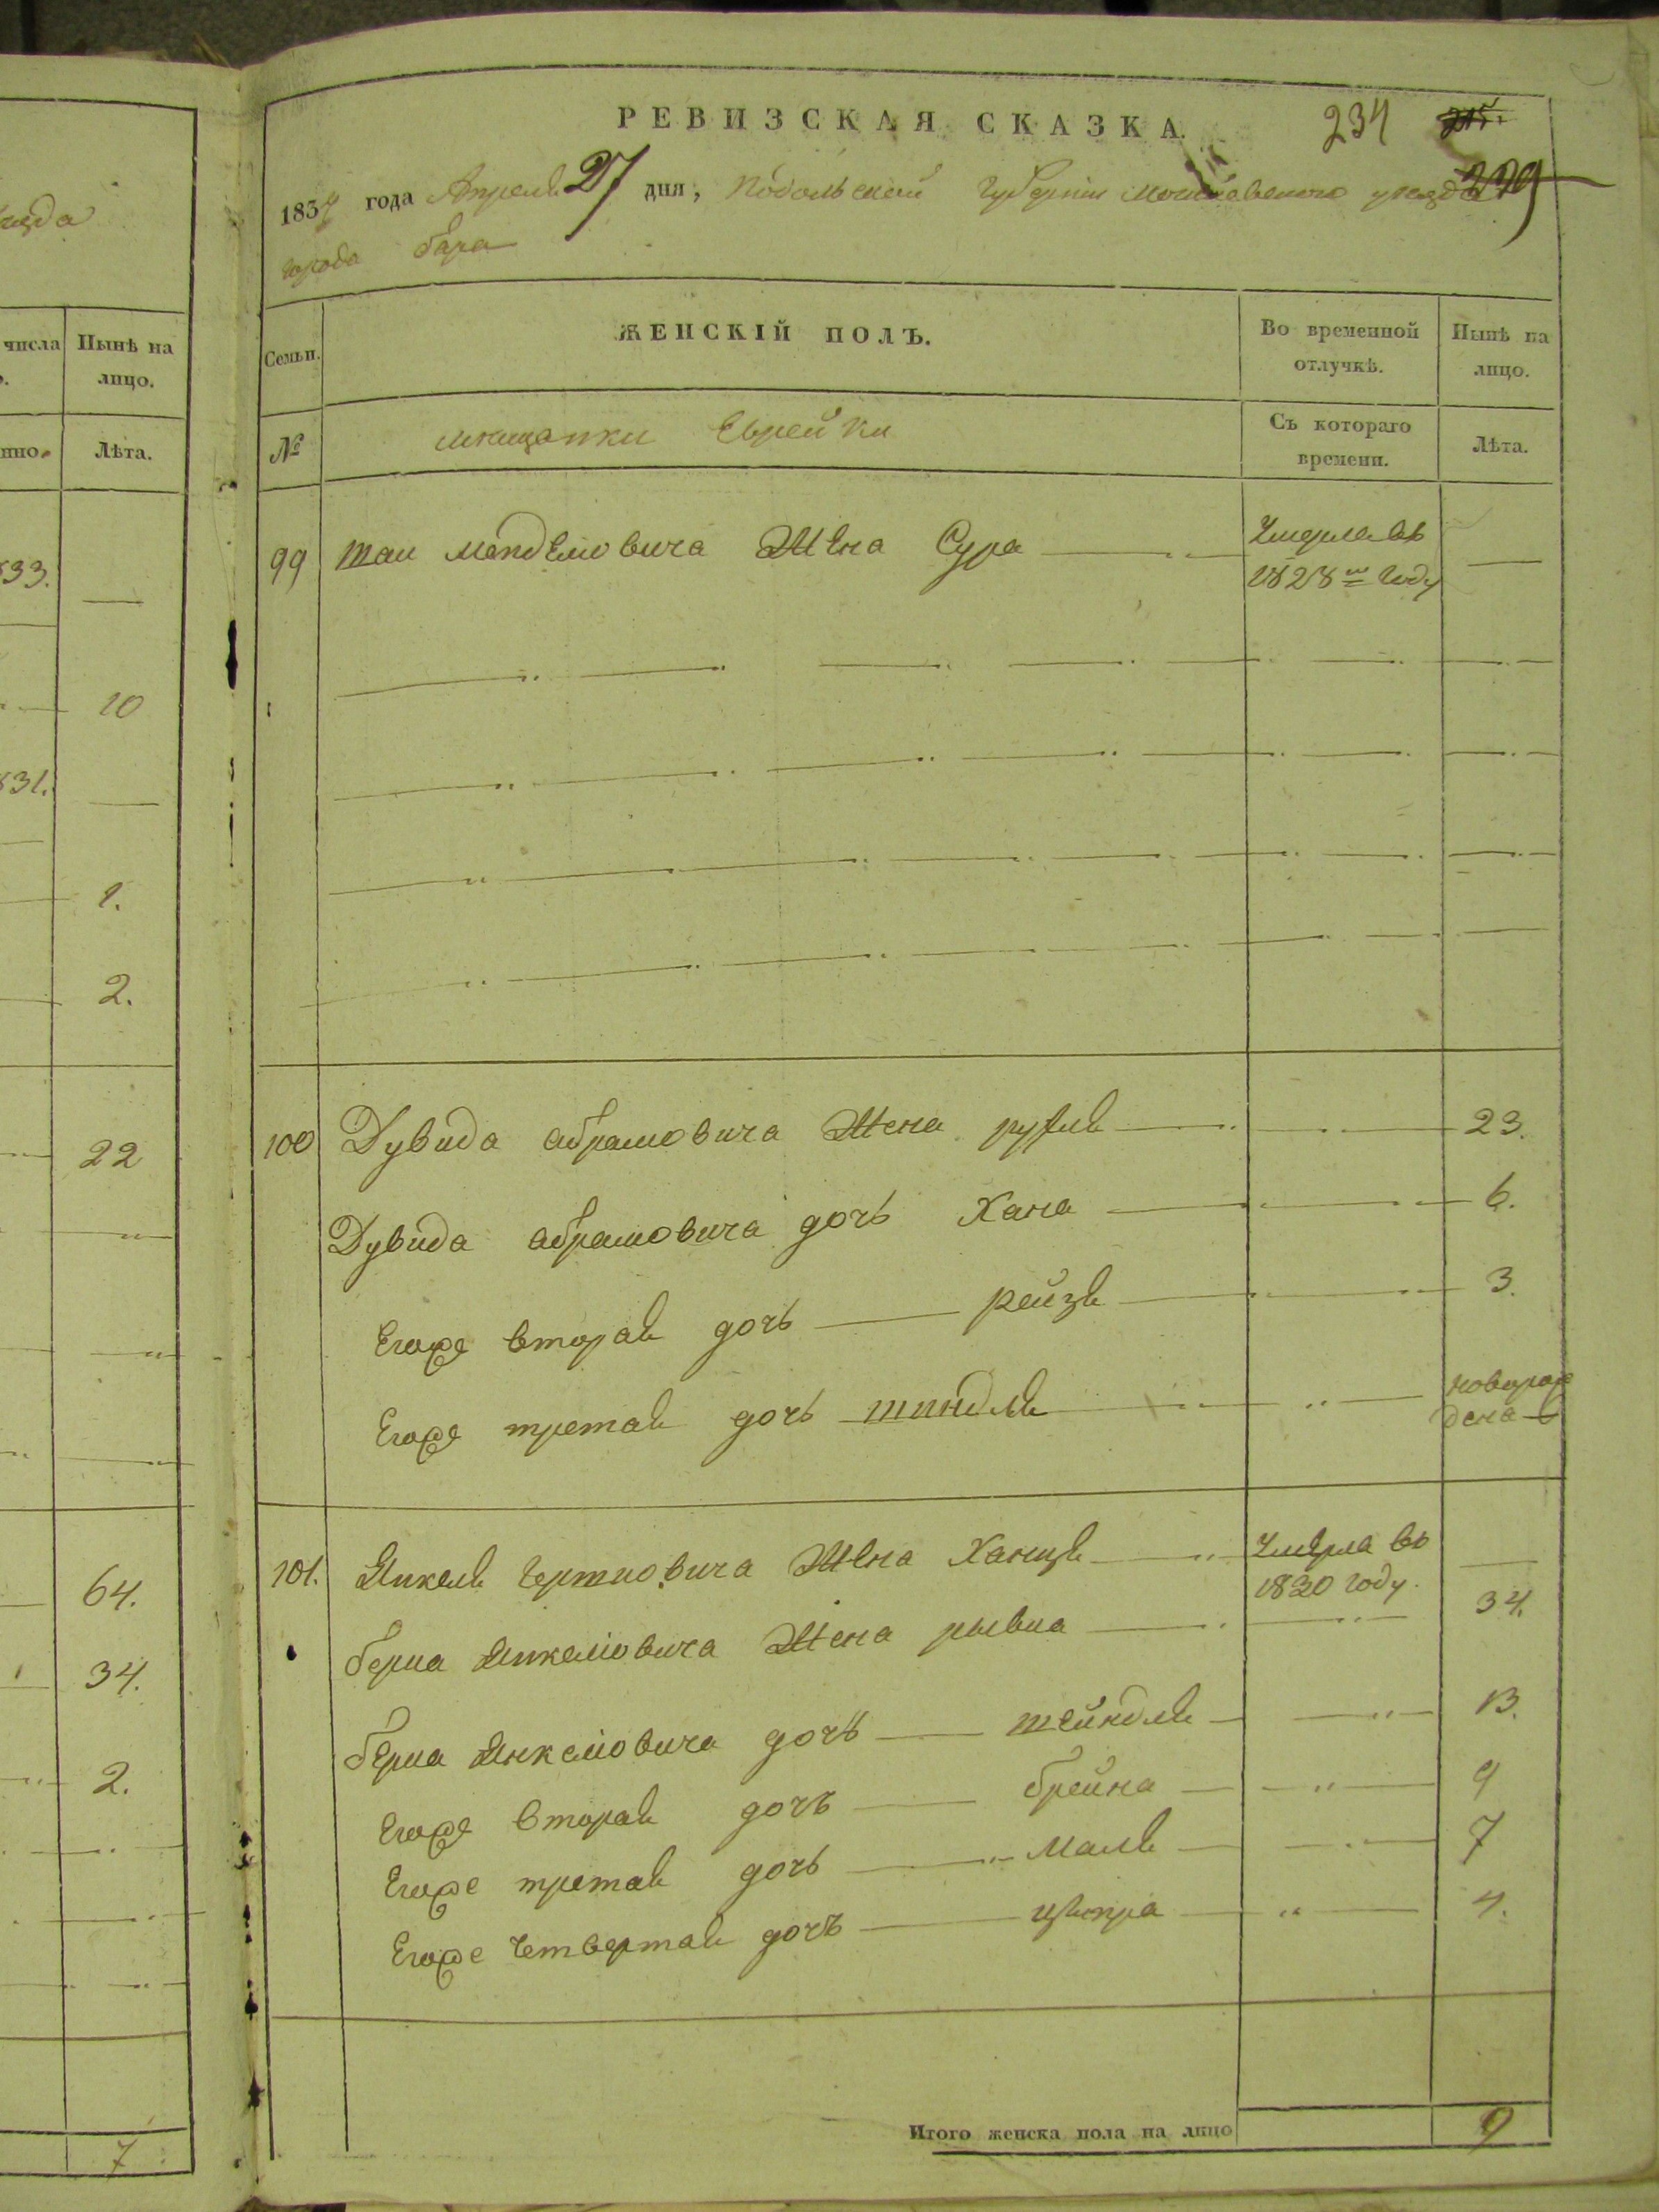 уезда
числа
Нынѣ на
лицо.
Лѣта.
833.
10
831.
1.
2.
22
64.
34.
2.
7
РЕВИЗСКАЯ СКАЗКА.
234
215.
1834 года Апреля 27 дня, Подольской Губернии Могилевского уезда
229
города бара
Семьи.
ЖЕНСКІЙ ПОЛЪ.
Во временной
отлучкѣ.
Нынѣ на
лицо.
№
мещанки Еврейки
Съ котораго
времени.
Лѣта.
99 Мендельовича Жена Сура Умерла въ
1828м Году
100 Дувида абрамовича Жена 23.
Дувида абрамовича дочь Хана 6.
Егоже вторая дочь рейзя 3.
Егоже третая дочь шиндля новорож
дена
101. Янкеля Жена Ханця Умерла въ
1830 году.
берка Янкеліовича Жена рывка 34.
берка Янкеліовича дочь шейндля 13.
Егоже вторая дочь брейна 9
Егоже третая дочь Маля 7
Егоже Четвертая дочь ципра 4.
Итого женска пола на лицо 9